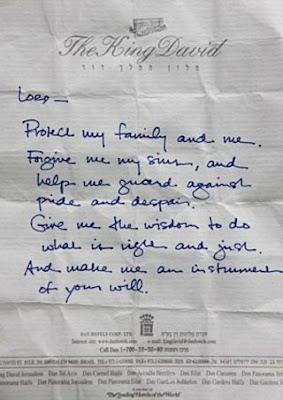 The King David
מלון המלך דוד
Lord—
Protect my family and me.
Forgive me my sins, and
help me guard against
pride and despair.
Give me the wisdom to do
what is right and just.
And make me an instrument
of your will.
DAN HOTELS CORP. LTD.